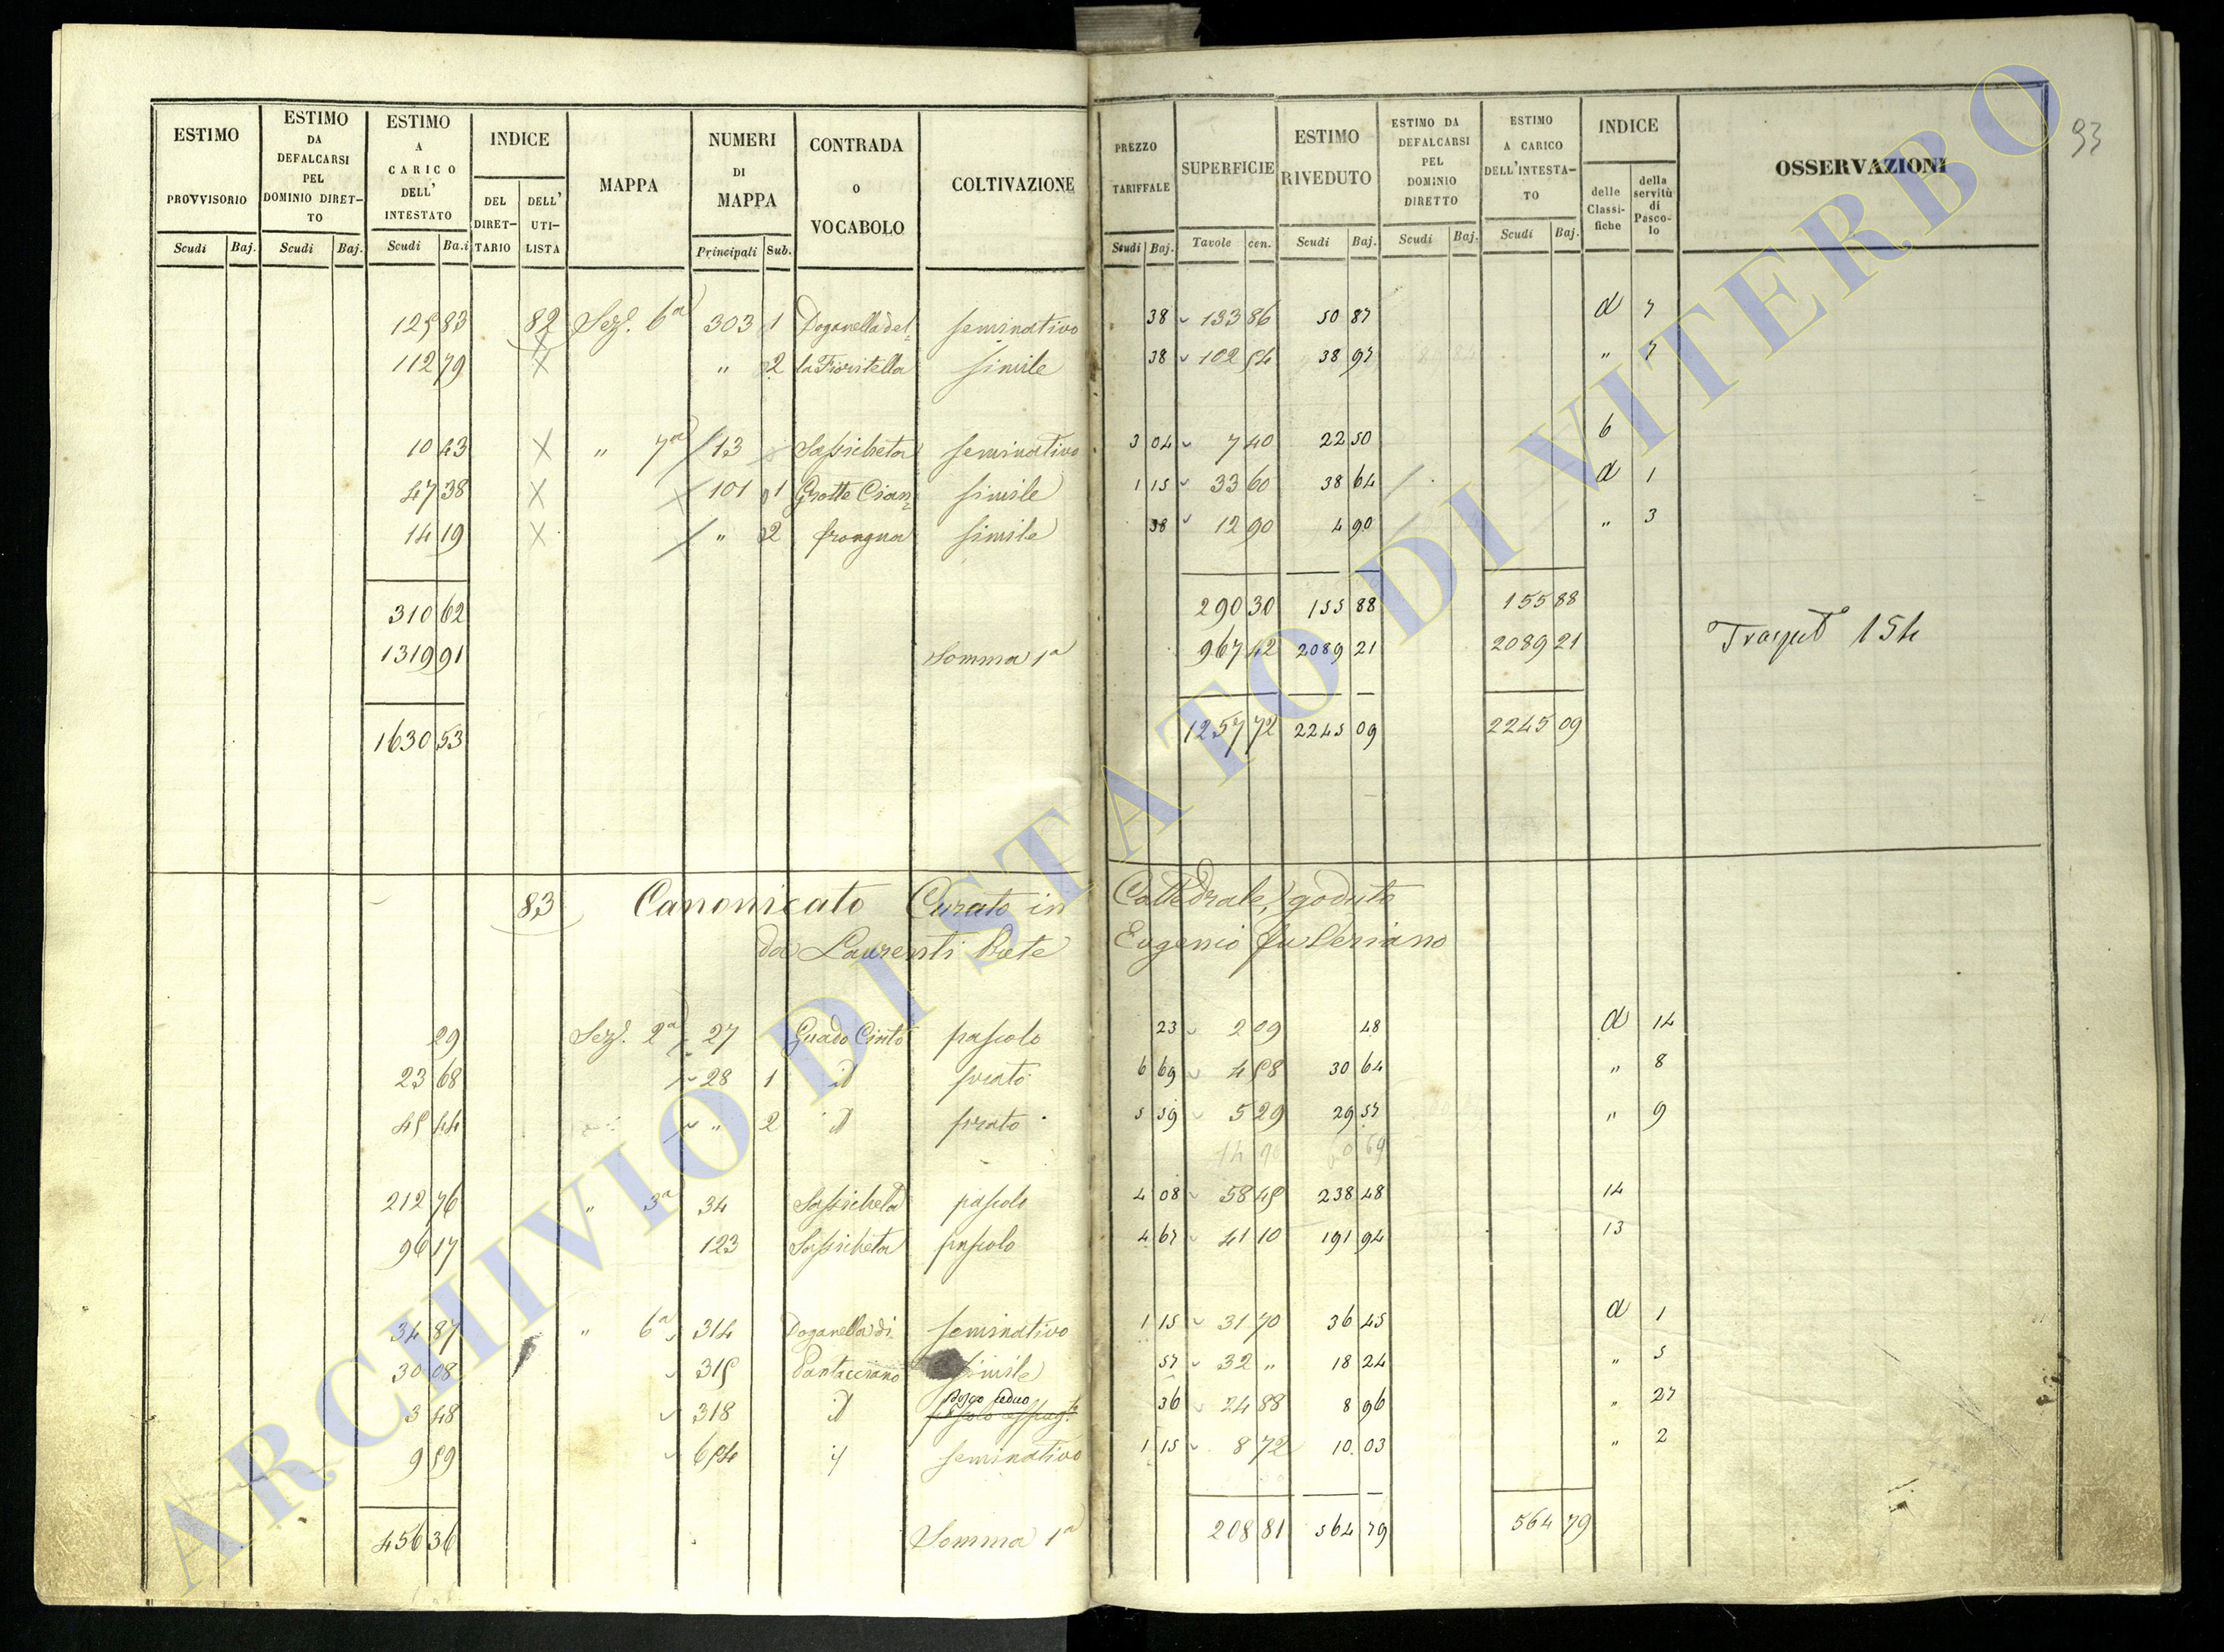 ESTIMO PROVVISORIO Scudi Baj.
ESTIMO DA DEFALCARSI PEL DOMINIO DIRET-TO Scudi Baj.
ESTIMO A CARICO DELL' INTESTATO Scudi Ba.i
INDICE DEL DIRET-TARIO DELL' UTI-LISTA
MAPPA
NUMERI DI MAPPA Principali Sub.
CONTRADA o VOCABOLO
COLTIVAZIONE
PREZZO TARIFFALE Scudi Baj.
SUPERFICIE Tavole cen.
ESTIMO RIVEDUTO Scudi Baj.
ESTIMO DA DEFALCARSI PEL DOMINIO DIRETTO Scudi Baj.
ESTIMO A CARICO DELL'INTESTA-TO Scudi Baj.
INDICE delle Classi-fiche della servitù di Pasco-lo
OSSERVAZIONI
93
125 83 82 Sez. 6a 303 1 Doganella del= seminativo 38 133 86 50 87 d 7
112 79 X " 2 la Fioritella simile 38 102 54 38 97 " 7
10 43 X " 7a 13 Sassicheta seminativo 3 04 7 40 22 50 b
47 38 X 101 1 Grotte Cian= simile 1 15 33 60 38 64 d 1
14 19 X " 2 frongna simile 38 12 90 4 90 " 3
310 62 290 30 155 88 155 88
1319 91 Somma 1a 967 42 2089 21 2089 21 154
1630 53 1257 72 2245 09 2245 09
83 Canonicato Curato in Cattedrale, goduto
da Laurenti Prete Eugenio fu Ceriano
29 Sez. 2a 27 Guado Cinto pascolo 23 2 09 48 d 14
23 68 28 1 id prato 6 69 4 58 30 64 " 8
45 44 " 2 id prato 5 59 5 29 29 57 " 9
212 76 " 3a 34 Sassicheta pascolo 4 08 58 45 238 48 14
96 17 123 Sassicheta pascolo 4 67 41 10 191 94 13
34 87 " 6a 314 Doganella di seminativo 1 15 31 70 36 45 d 1
30 08 315 Pantacciano simile 57 32 " 18 24 " 5
3 48 318 id bosco ceduo 36 24 88 8 96 " 27
9 59 654 id seminativo 1 15 8 72 10 03 " 2
456 36 Somma 1a 208 81 564 79 564 79
ARCHIVIO DI STATO DI VITERBO